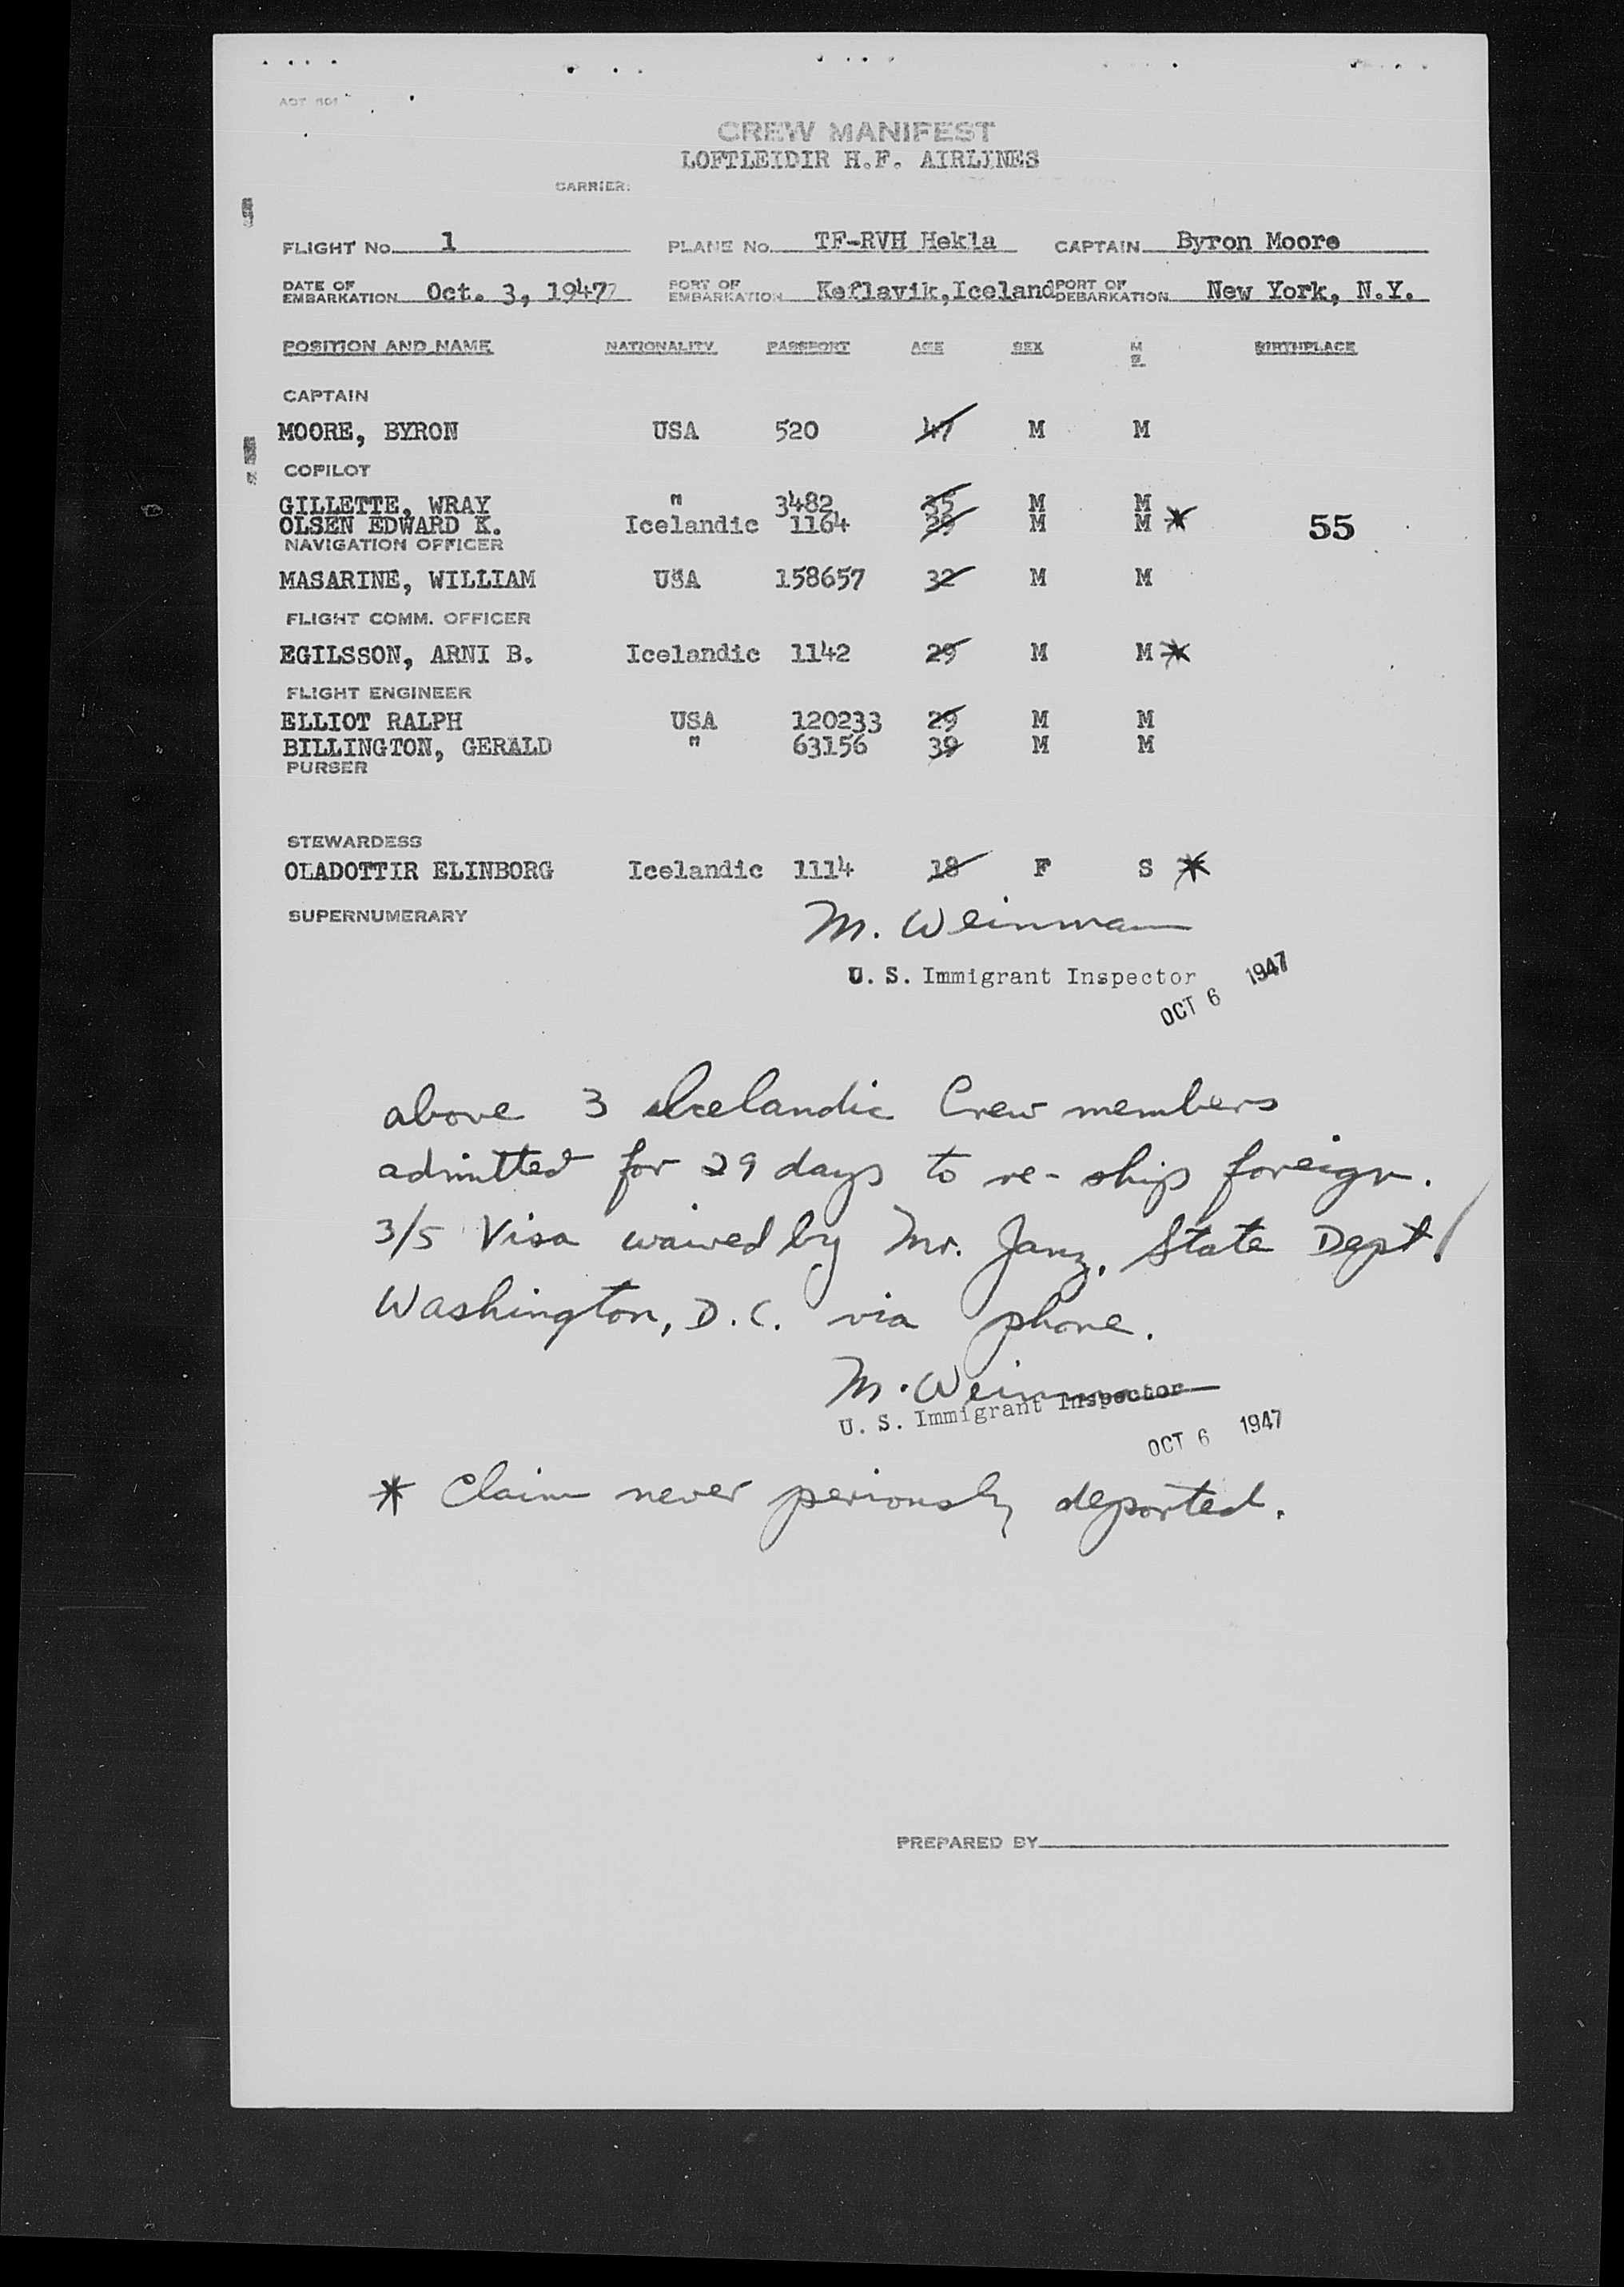 CREW MANIFEST
LOFTLEIDIR H.F. AIRLINES
CARRIER:
FLIGHT No. 1 PLANE No. TF-RVH Hekla CAPTAIN Byron Moore
DATE OF EMBARKATION Oct. 3, 1947 PORT OF EMBARKATION Keflavik, Iceland PORT OF DEBARKATION New York, N.Y.
POSITION AND NAME NATIONALITY PASSPORT AGE SEX M S BIRTHPLACE
CAPTAIN
MOORE, BYRON USA 520 47 M M
COPILOT
GILLETTE, WRAY " 3482 35 M M
OLSEN EDWARD K. Icelandic 1164 29 M M * 55
NAVIGATION OFFICER
MASARINE, WILLIAM USA 158657 32 M M
FLIGHT COMM. OFFICER
EGILSSON, ARNI B. Icelandic 1142 29 M M *
FLIGHT ENGINEER
ELLIOT RALPH USA 120233 29 M M
BILLINGTON, GERALD " 63156 39 M M
PURSER
STEWARDESS
OLADOTTIR ELINBORG Icelandic 1114 18 F S *
SUPERNUMERARY
M. Weinman
U. S. Immigrant Inspector
OCT 6 1947
above 3 Icelandic Crew members
admitted for 29 days to re-ship foreign.
3/5 Visa waived by Mr. Janz, State Dept.
Washington, D.C. via phone.
M. Weinman
U. S. Immigrant Inspector
OCT 6 1947
* Claim never periously deported.
PREPARED BY